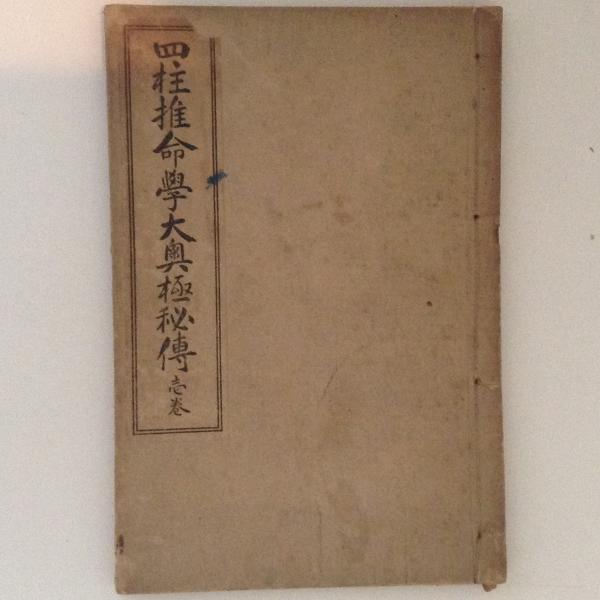 四柱推命學大奧極秘傳 壱巻